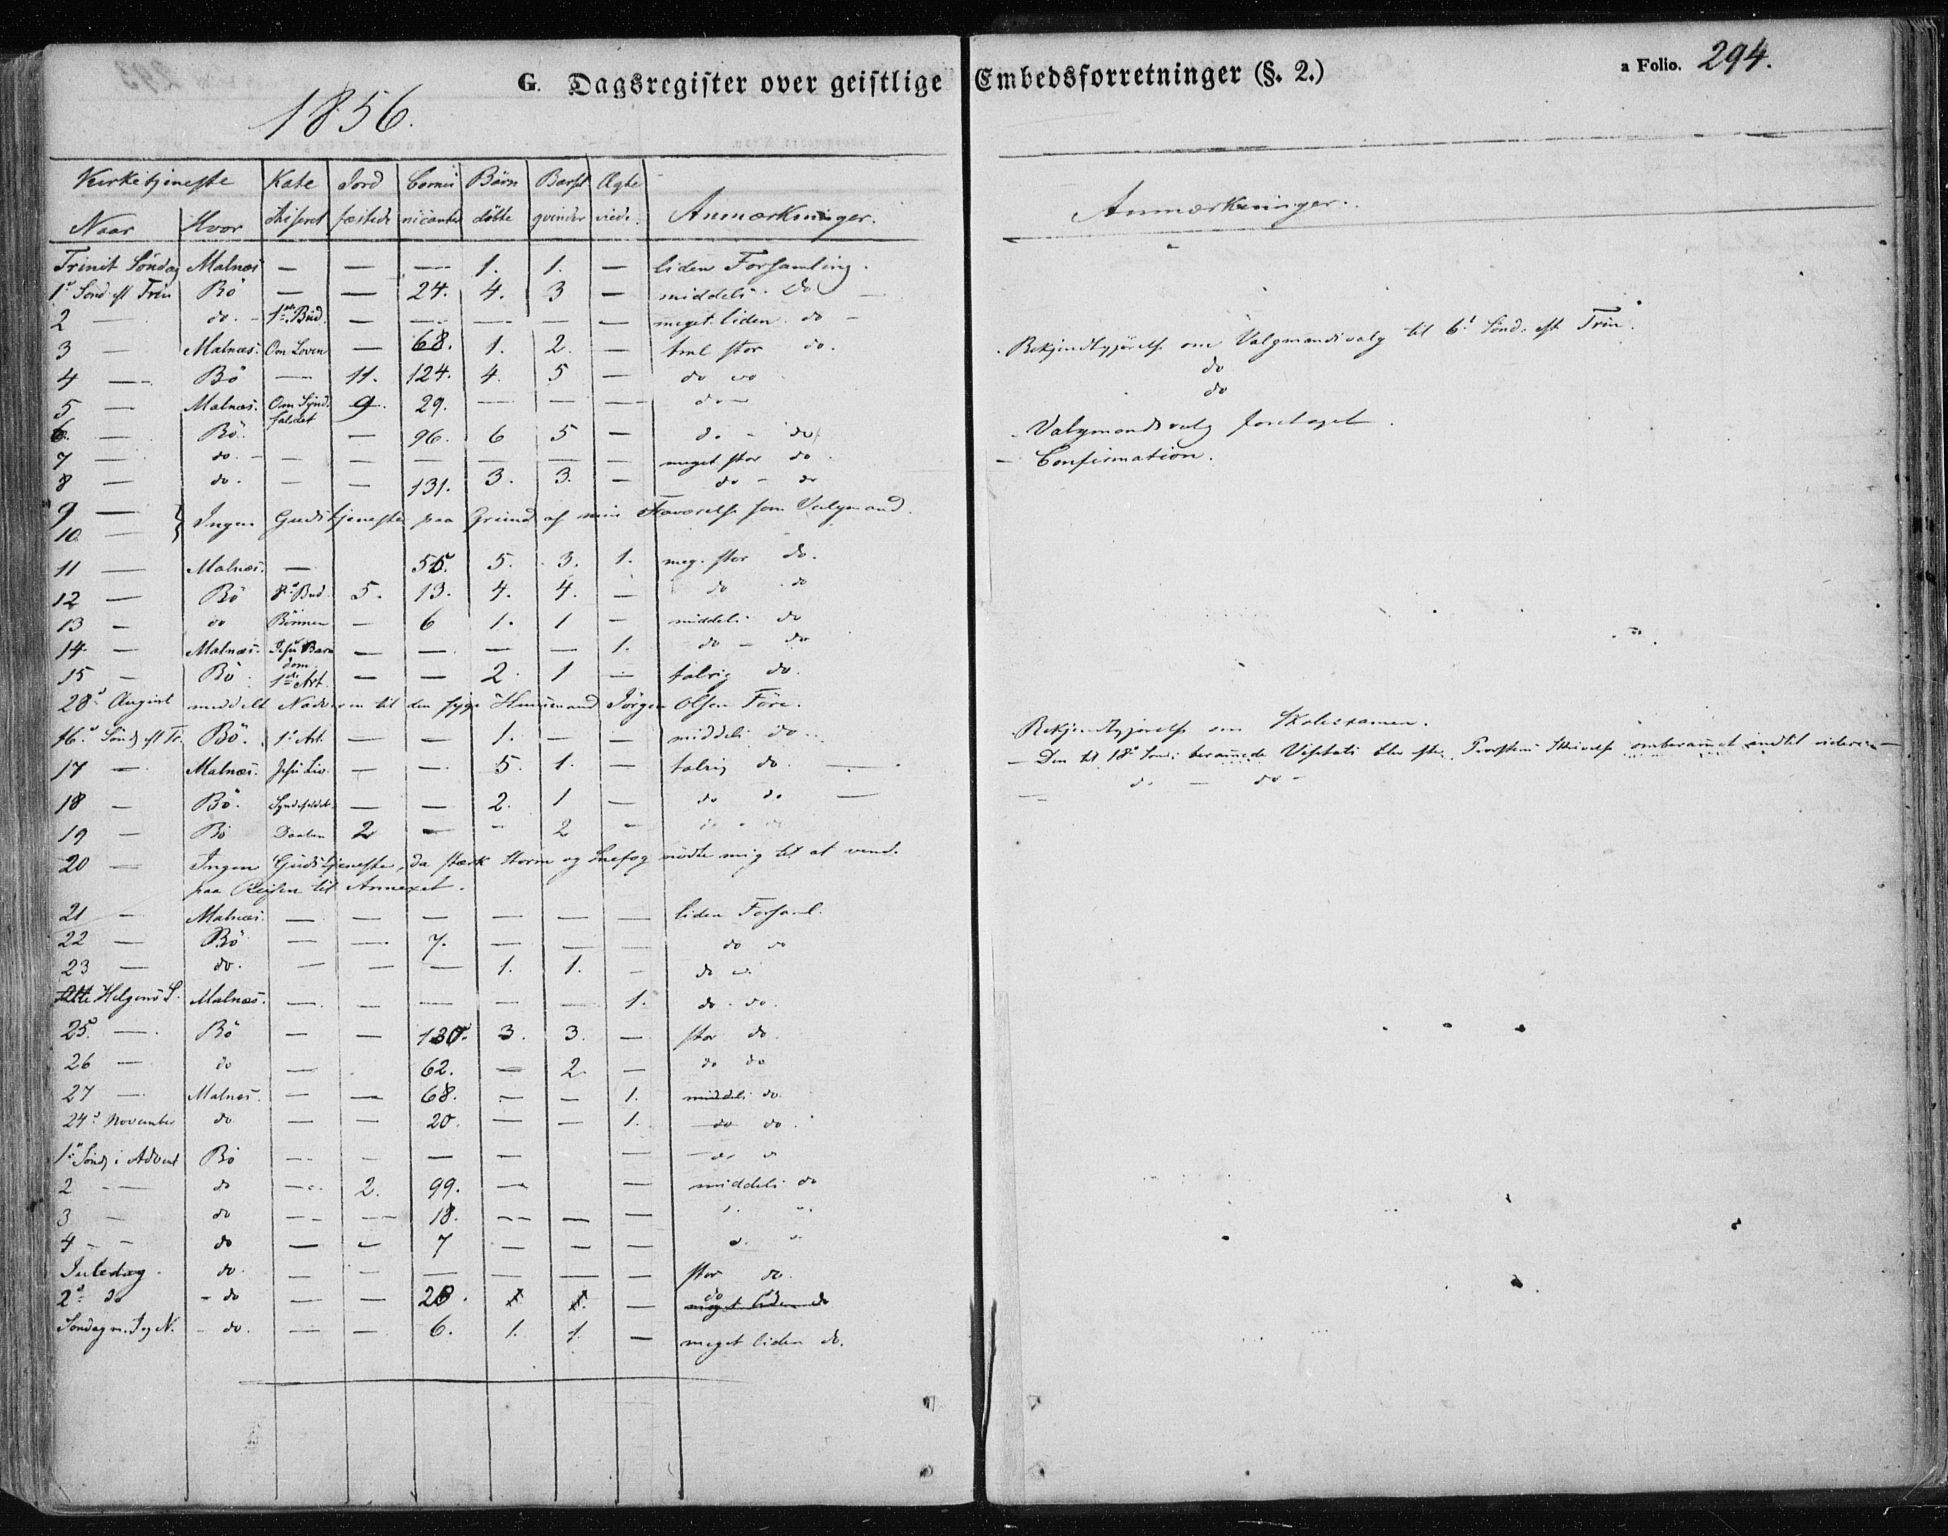 G. Dagsregister over geistlige Embedsforretninger (§. 2.) a Folio. 294.
1856.
Kirketjeneste Kate Jord Commu Börn Barsel Ægte
Naar Hvor chiseret fæstede nicanter döbte qvinder viede. Anmærkninger. Anmærkninger.
Trinit Söndag Malnæs — — — 1. 1. — liden Forsamling.
1ᵉ Sönd. eft Trin Bö — — 24. 4. 3 — middels do —
2 — do. — 1ste Bud. — — — — — meget liden do —
3 — Malnæs. Om Loven — 68. 1. 2. — tml stor do. Bekjendtgjörelse om Valgmandsvalg til 6ᵗ Sönd. eft Trin.
4 — Bö — 11. 124. 4. 5 — do do do
5 — Malnæs. Om Synde faldet 9. 29. — — — do — do
6. — Bö. — 96. 6 5 — do - do Valgmandsvalg foretaget.
7 — do. — — — — — — — meget stor do. — Confirmation.
8 — do. — — 131. 3. 3. — do - do
9 — } Ingen Gudstjeneste paa Grund af min Fraværelse som Valgmand.
10 —
11 — Malnæs. — 55. 5. 3. 1. meg. stor do.
12 — Bö 8ᵉ Bud. 5. 13. 4. 4. — do do
13 — do Bönnen — 6 1. 1 — middels do
14. — Malnæs. Jesu Barn dom. — — — — 1. do — do
15 — Bö. 1ste Art. — — 2. 1 — talrig do.
28ᵈ August meddelt Nadveren til den syge Huusmand Jörgen Olsen Före.
16.ᵈ Sönd eft Tr. Bö. 1ᵉ Art. — — 1. — — middels do. Bekjendtgjörelse om Skoleexamen.
17 — Malnæs. Jesu Liv. — — 5. 1. — talrig do. — — Den til 18ᵈ Sönd. beramede Visitats blev efter Provstens Skrivelse omberammet indtil videre —
18 — Bö. Syndefaldet — — 2. 1 — do do — — do — do —
19 — Bö Daaben 2 — - 2 - do - do
20 — Ingen Gudstjeneste, da stærk Storm og Snefog nödte mig til at vende
paa Reisen til Annexet.
21 — Malnæs. — — — — — — liden Forsaml.
22 — Bö — — 7. — — — do do
23 — do. — — — 1. 1. — do do
Alle Helgens S. Malnæs. — — — — — 1. do. do.
25 — Bö — — 130. 3. 3. — stor do.
26 — do — 62. — 2. — do do
27 — Malnæs. — — 68. — — 1. middels do.
24ᵈ November do — — 20. — — 1. do do.
1ᵉ Sönd i Advent Bö — — — — — — do do
2 — do — 2. 99. — — middels do
3 — do — — 18. — — —
4 — do — — 7 — — —
Juledag. do. — — — — — — stor do.
2ᵈ do - do — — 28. 1 1. — do do meget liden do
Söndag m. J og N. - do. — — 6. 1. 1. — meget liden do.